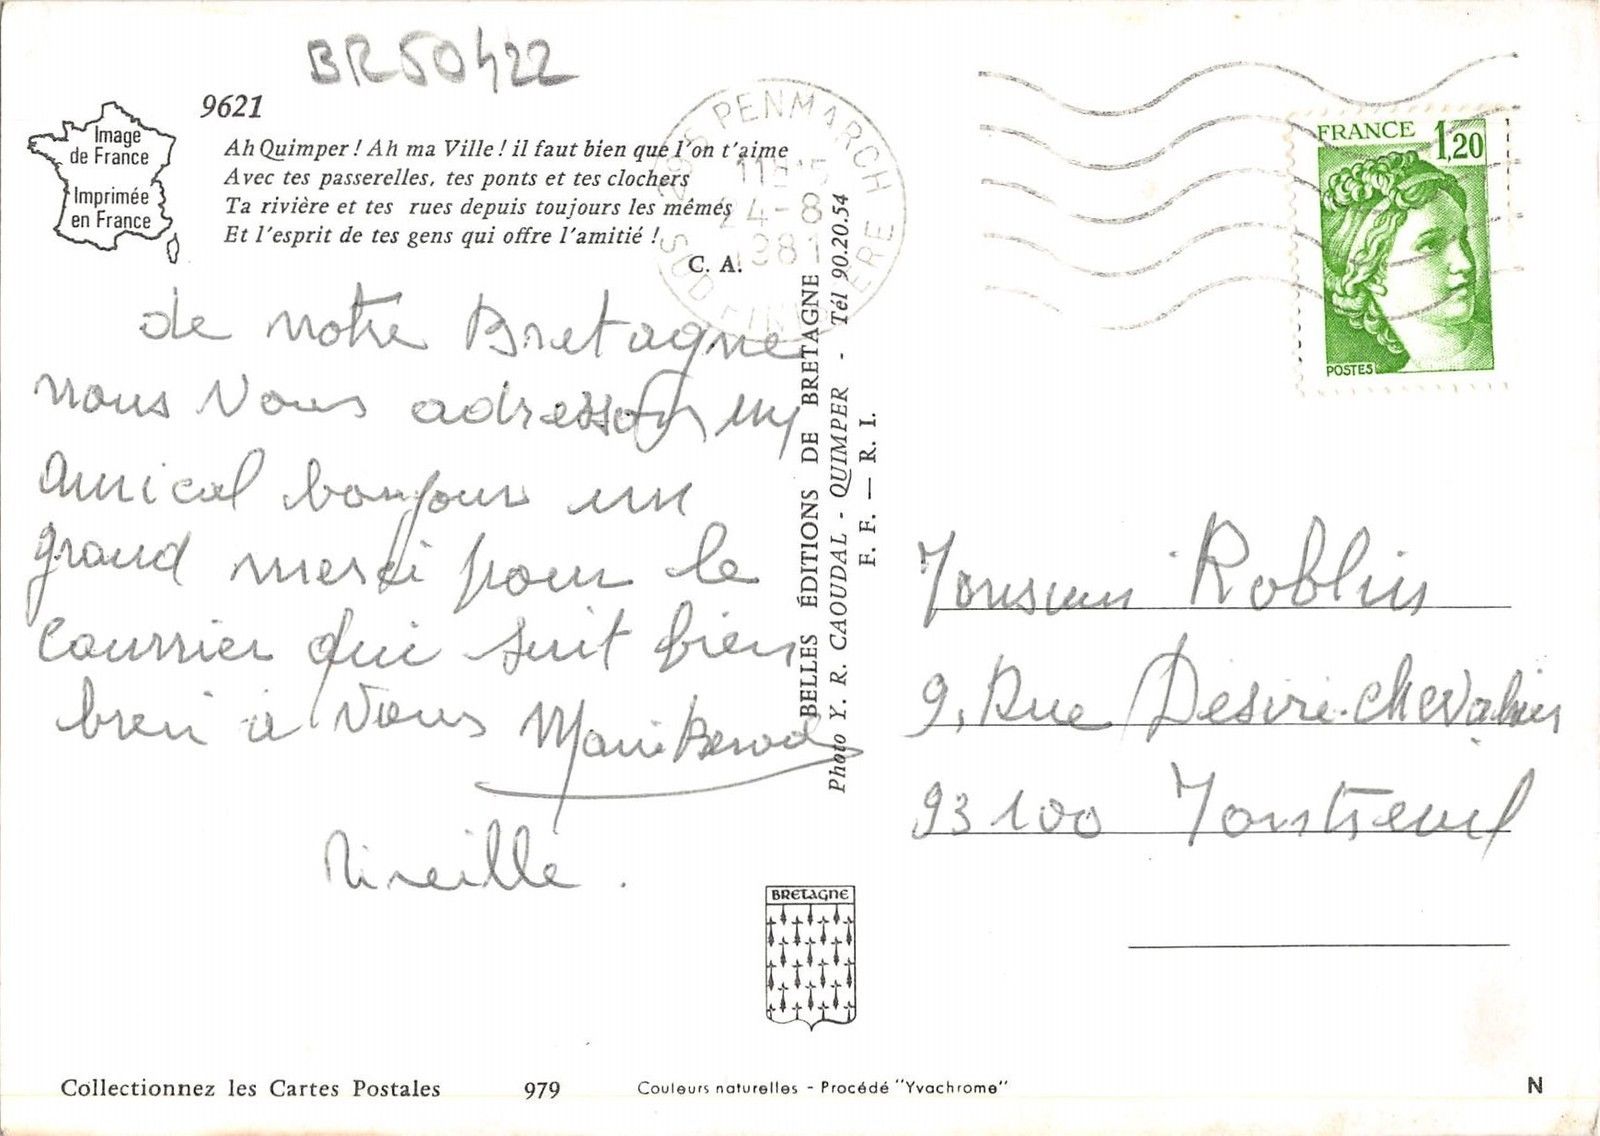 BR50422
9621
Image
de France
Imprimée
en France
Ah Quimper ! Ah ma Ville ! il faut bien que l'on t'aime
Avec tes passerelles, tes ponts et tes clochers
Ta rivière et tes rues depuis toujours les mêmes
Et l'esprit de tes gens qui offre l'amitié !
C. A.
de notre Bretagne
nous vous adressons un
amical bonjour un
grand merci pour le
courrier qui suit bien
bien à vous Marie
Mireille.
BELLES ÉDITIONS DE BRETAGNE
Photo Y. R. CAOUDAL - QUIMPER - Tél 90.20.54
F. F. — R. I.
PENMARCH
24-8
1981
SUD FINISTERE
FRANCE 1,20
POSTES
Monsieur Roblin
9, Rue Désiré-Chevalier
93100 Montreuil
BRETAGNE
Collectionnez les Cartes Postales
979
Couleurs naturelles - Procédé "Yvachrome"
N